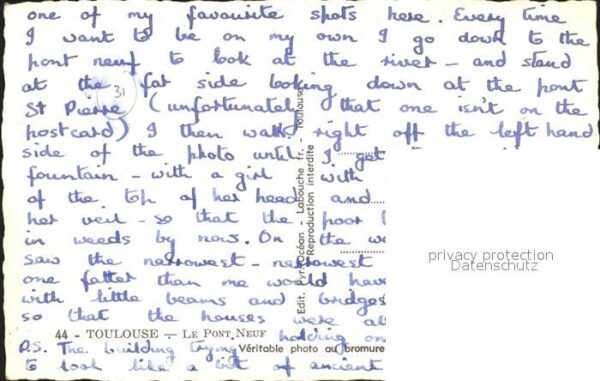 one of my favourite spots here. Every time
I want to be on my own I go down to the
pont neuf to look at the river - and stand
at the far side looking down at the pont
31
St Pierre (unfortunately that one isn't on the
postcard) I then walk right off the left hand
side of the photo until I get
fountain - with a girl with
of the top of her head and
her veil - so that the poor
in weeds by now. On the
saw the narrowest - narrowest
one fatter than me would have
with little beams and bridges
so that the houses were
holding on
44 - TOULOUSE — LE PONT NEUF
P.S. The building trying
to look like a bit of ancient
Véritable photo au bromure
Edit. Pyr.-Océan - Labouche fr. - Toulouse
Reproduction interdite
privacy protection
Datenschutz